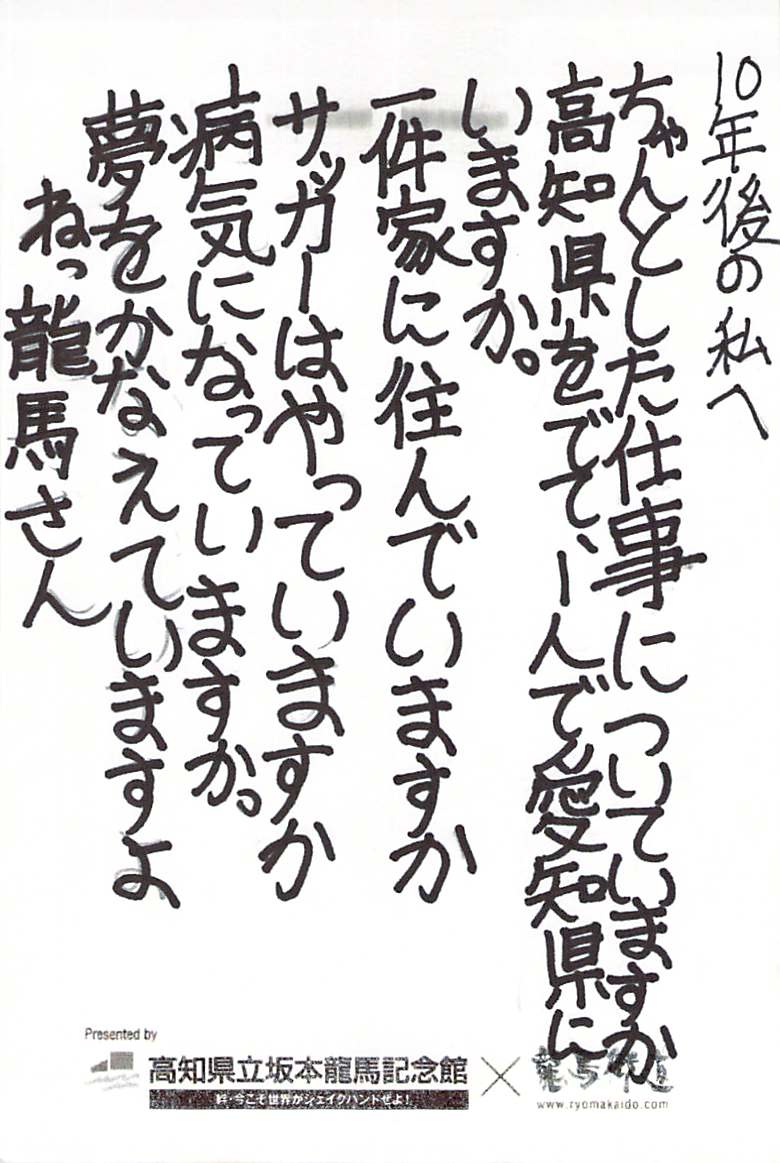 10年後の私へ
ちゃんとした仕事についていますか
高知県をでて、一人で愛知県に
いますか。
一件家に往んでいますか
サッカーはやっていますか
病気になっていますか。
夢をかなえていますよ
ねっ龍馬さん
Presented by
高知県立坂本龍馬記念館
絆・今こそ世界がシェイクハンドせよ!
www.ryomakaido.com